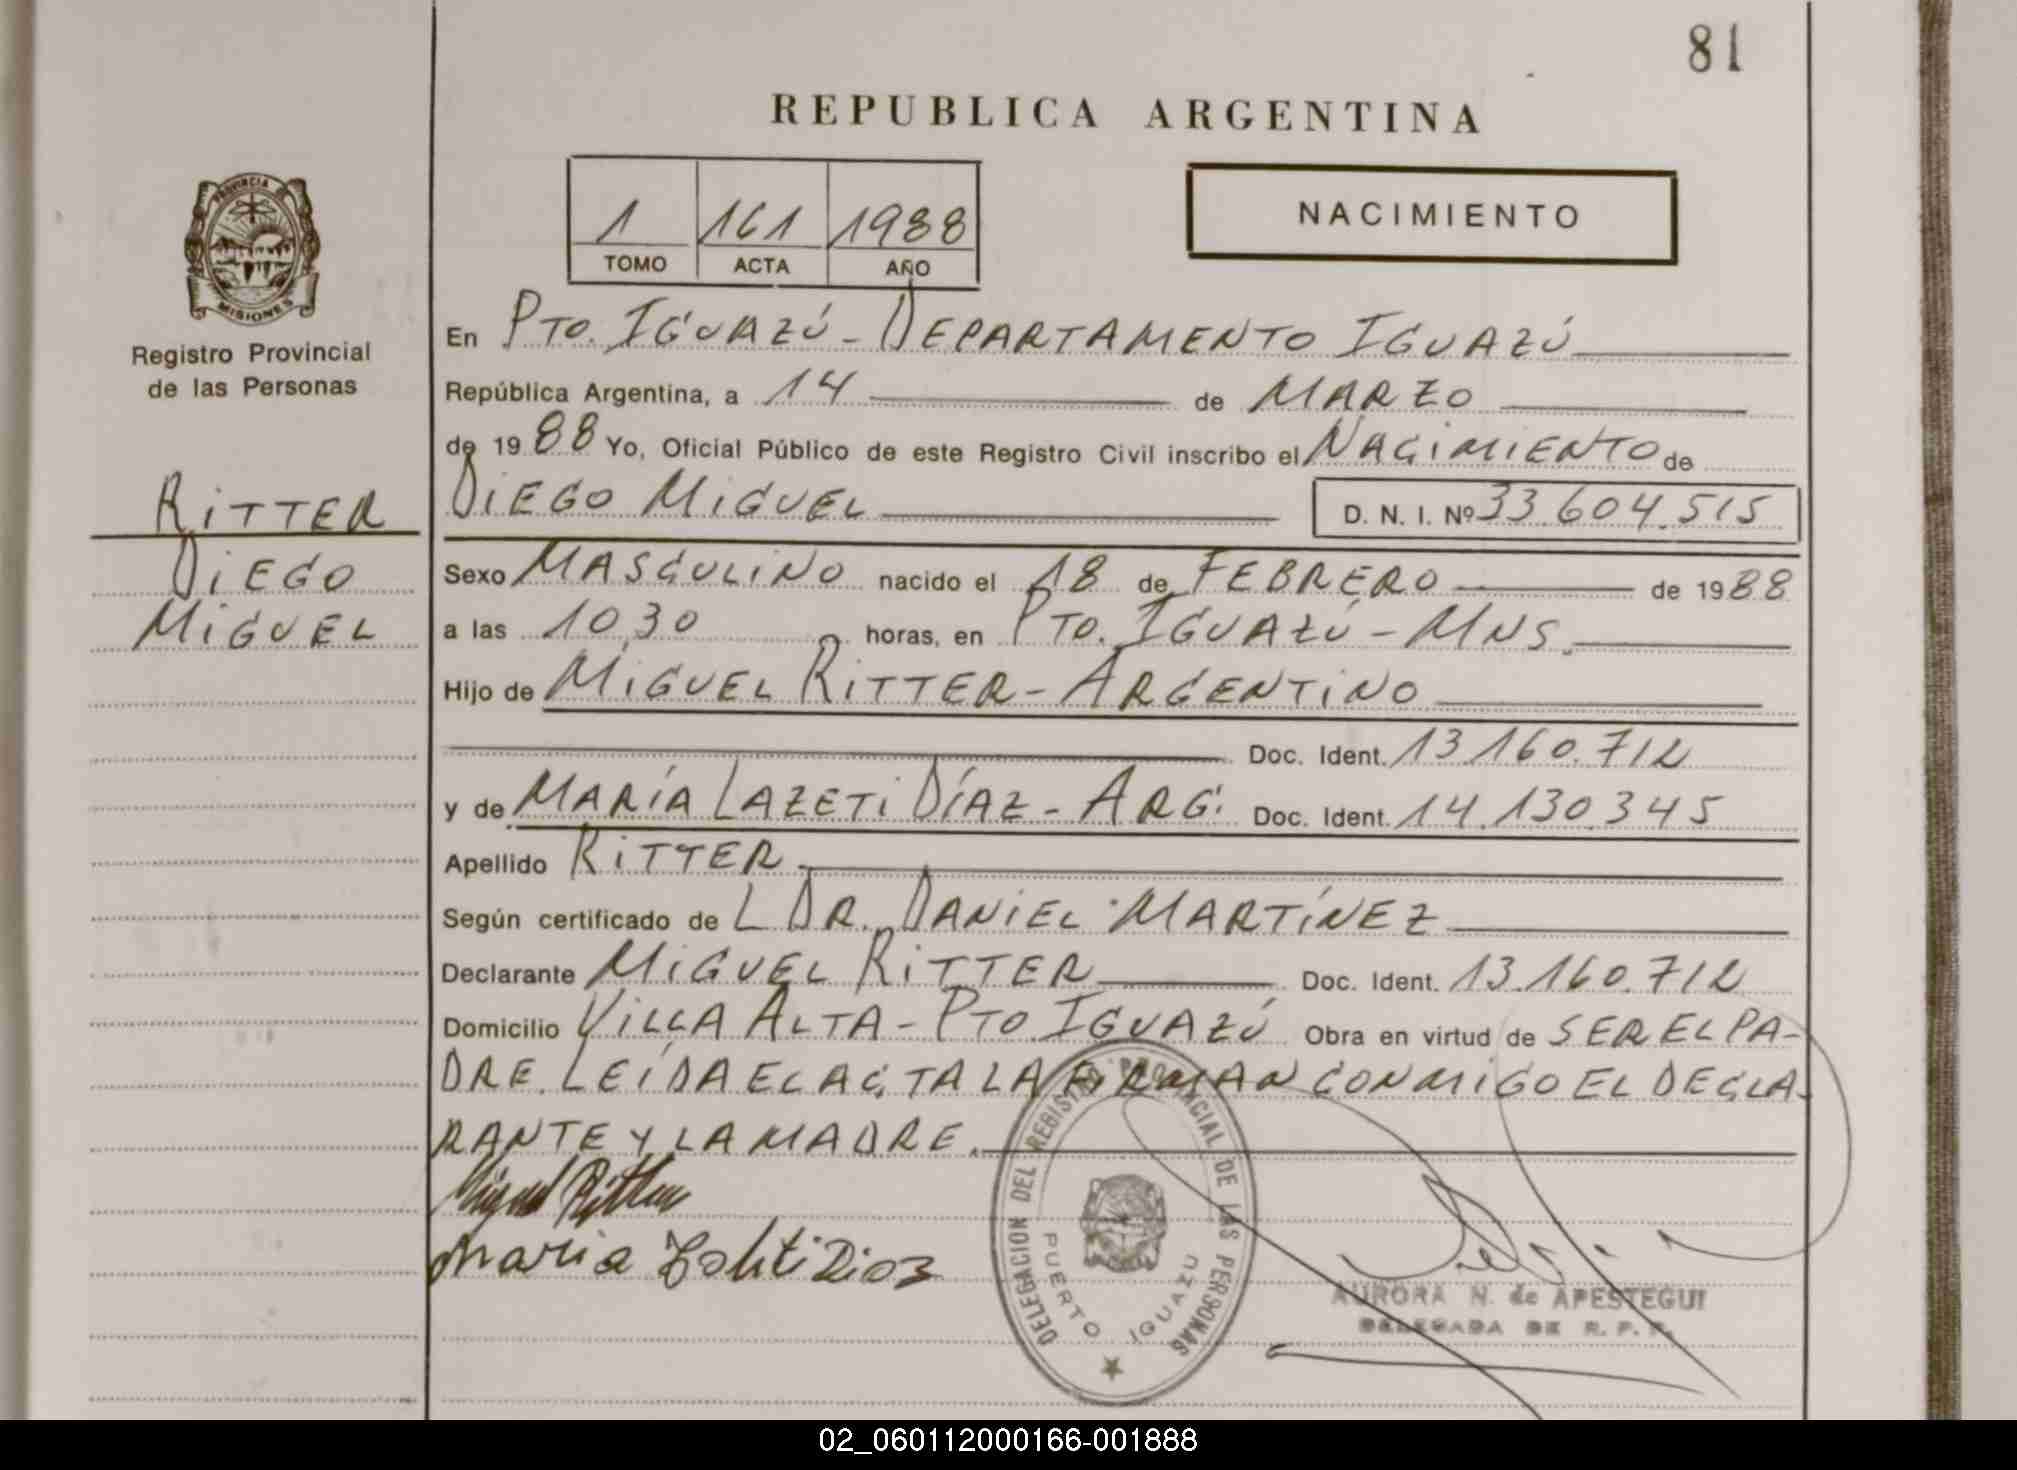 81
REPUBLICA ARGENTINA
PROVINCIA
MISIONES
Registro Provincial
de las Personas
1 161 1988
TOMO ACTA AÑO
NACIMIENTO
En PTO. IGUAZÚ - DEPARTAMENTO IGUAZÚ
República Argentina, a 14 de MARZO
de 1988 Yo, Oficial Público de este Registro Civil inscribo el NACIMIENTO de
DIEGO MIGUEL D. N. I. Nº 33.604.515
RITTER
DIEGO
MIGUEL
Sexo MASCULINO nacido el 18 de FEBRERO de 1988
a las 10,30 horas, en PTO. IGUAZÚ - MNS.
Hijo de MIGUEL RITTER - ARGENTINO
Doc. Ident. 13.160.712
y de MARÍA LAZETI DÍAZ - ARG. Doc. Ident. 14.130.345
Apellido RITTER
Según certificado de L DR. DANIEL MARTÍNEZ
Declarante MIGUEL RITTER Doc. Ident. 13.160.712
Domicilio VILLA ALTA - PTO IGUAZÚ Obra en virtud de SER EL PA-
DRE. LEÍDA EL ACTA LA FIRMAN CONMIGO EL DECLA-
RANTE Y LA MADRE.
Miguel Ritter
Maria Díaz
DELEGACION DEL REGISTRO PROVINCIAL DE LAS PERSONAS
PUERTO IGUAZU
AURORA N. de APESTEGUI
DELEGADA DE R. P. P.
02_060112000166-001888